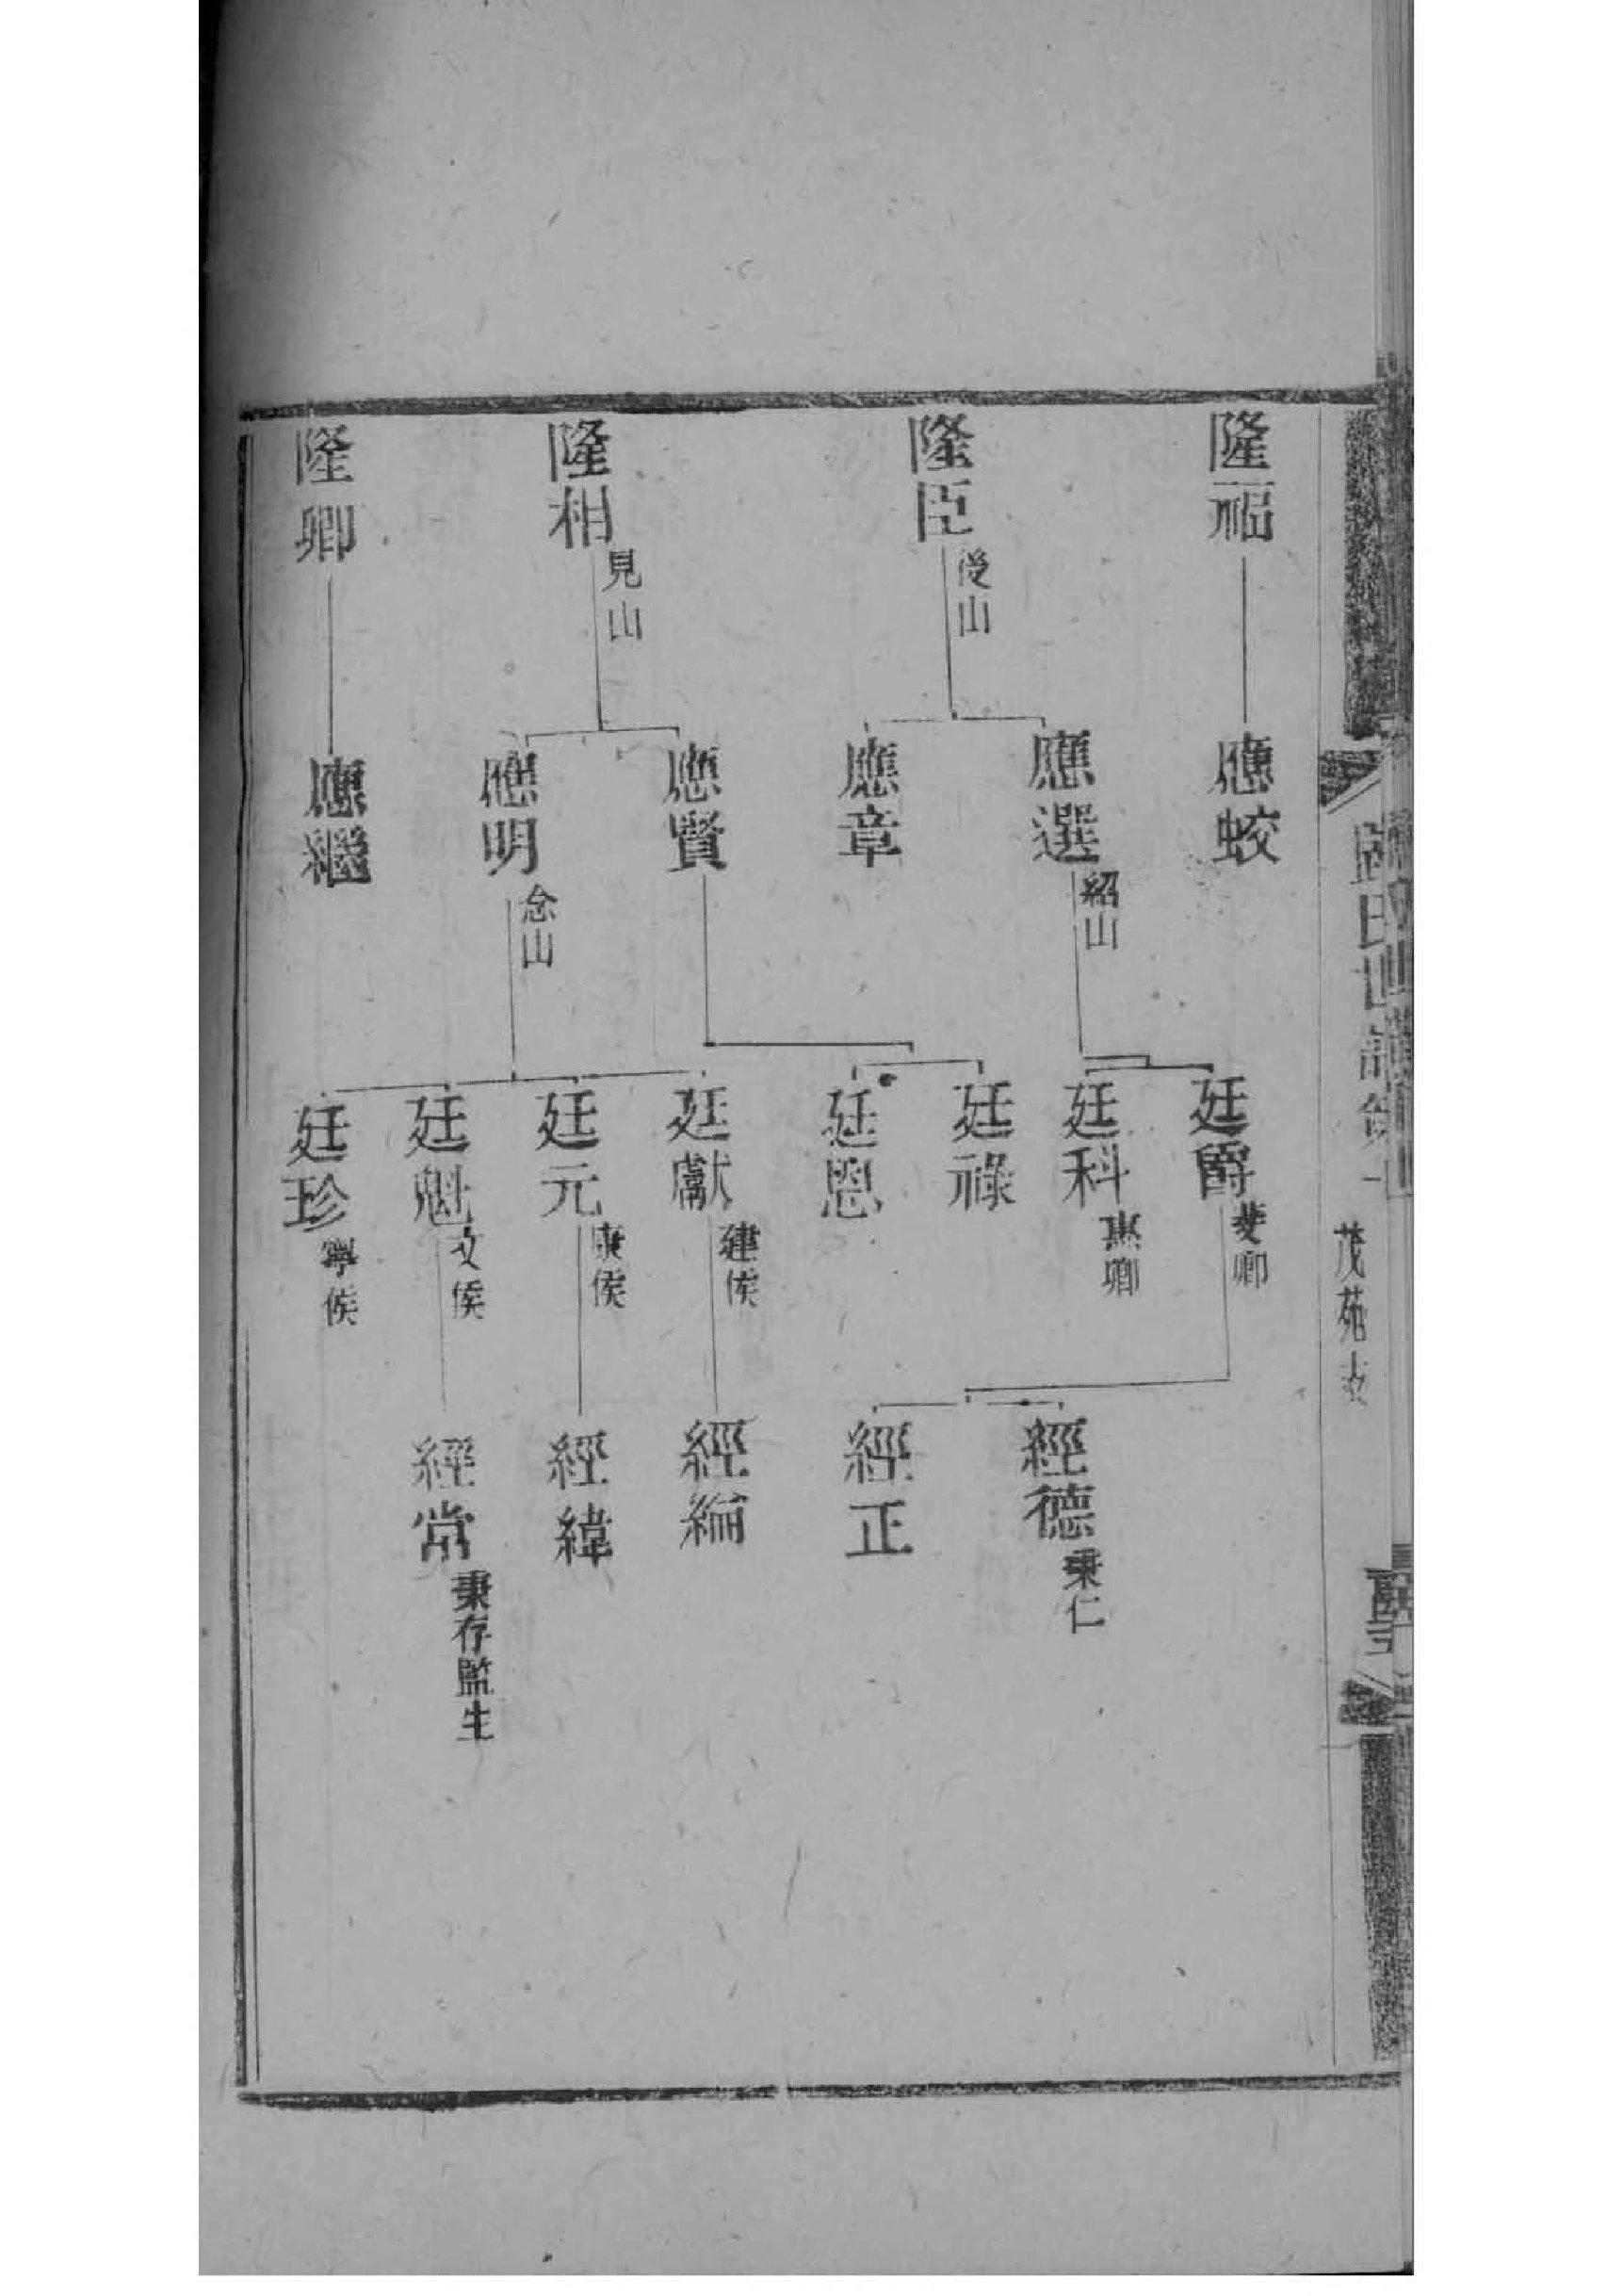 茂苑支
隆福
隆臣
後山
隆相
見山
隆卿
應蛟
應選
紹山
應章
應賢
應明
念山
應繼
廷爵
斐卿
廷科
惠卿
廷祿
廷恩
廷獻
建侯
廷元
康侯
廷魁
文侯
廷珍
寧侯
經德
秉仁
經正
經綸
經緯
經常
秉存監生